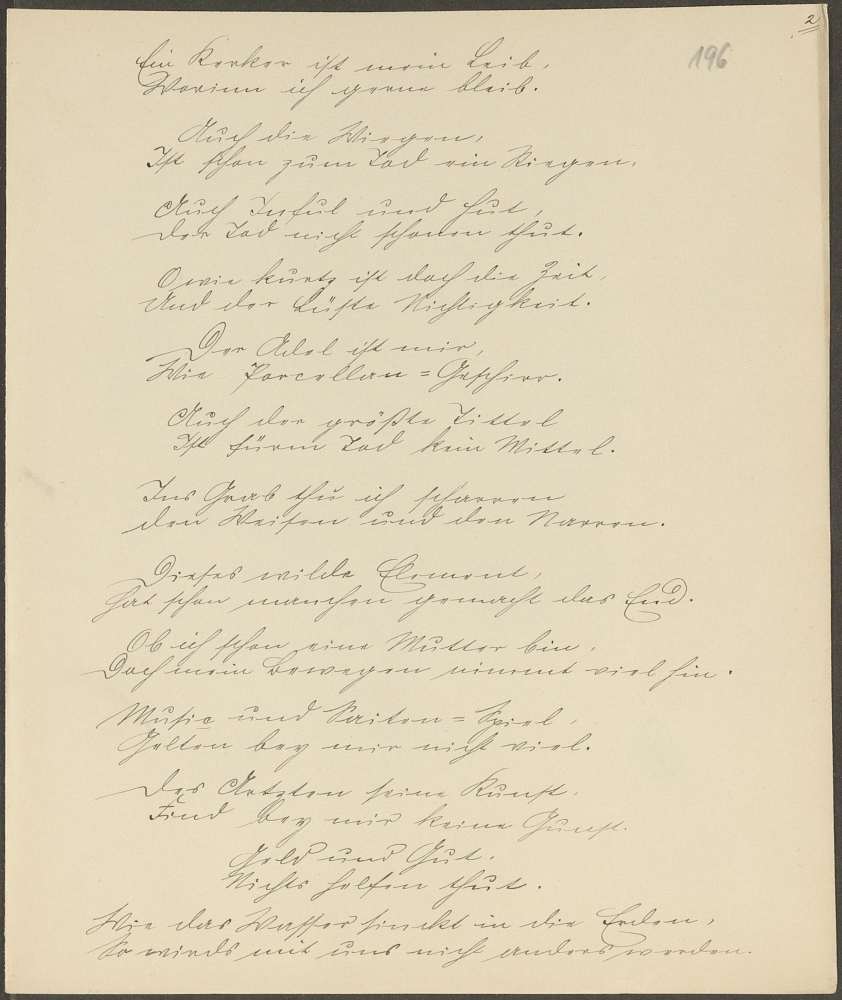 2
196
Ein Kerker ist mein Leib,
Worinn ich gerne bleib.
Auch die Wiegen,
Ist schon zum Tod ein Stiegen.
Auch Inful und Hut,
Der Tod nicht schonen thut.
O wie kurtz ist doch die Zeit,
Und der Lüste Nichtigkeit.
Der Adel ist mir,
Wie Porcellan-Geschirr.
Auch der größte Tittel
Ist fürm Tod kein Mittel.
Ins Grab thu ich scharren
den Weisen und den Narren.
Dieses wilde Element,
hat schon manchen gemacht das End.
Ob ich schon eine Mutter bin,
Doch mein Bewegen nimmt viel hin.
Music und Saiten-Spiel,
Gelten bey mir nicht viel.
Des Artzten seine Kunst.
Find bey mir keine Gunst.
Geld und Gut.
Nichts helfen thut.
Wie das Wasser sinckt in die Erden,
So wirds mit uns nicht anders werden.